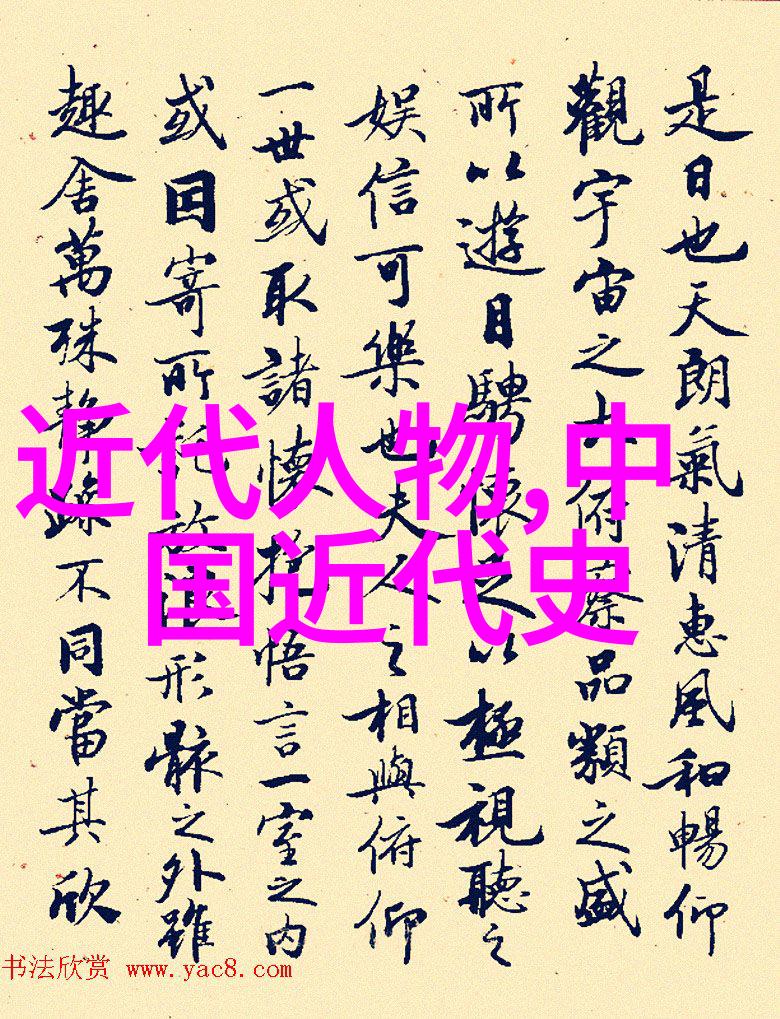 是日也天朗氣清惠風和暢仰
觀宇宙之大俯察品類之盛
所以遊目騁懷足以極視聽之
娱信可樂也夫人之相與俯仰
一世或取諸懷抱悟言一室之内
或因寄所託放浪形骸之外雖
趣舍萬殊静躁不同當其欣
近代人物,中
国近代史
书法欣赏 www.yac8.com